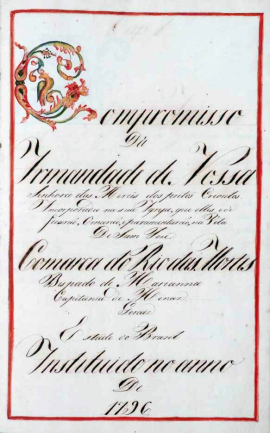 Compromisso
Da
Irmandade de Nossa
Senhora das Mercês dos pretos Crioulos
Incorporada na sua Igreja, que elles
e paramentarão, na Vila
De Sam José
Comarca do Rio das Mortes
Bispado de Marianna
Capitania de Minas
Geraes
Estado do Brasil
Instituido no anno
De
1796